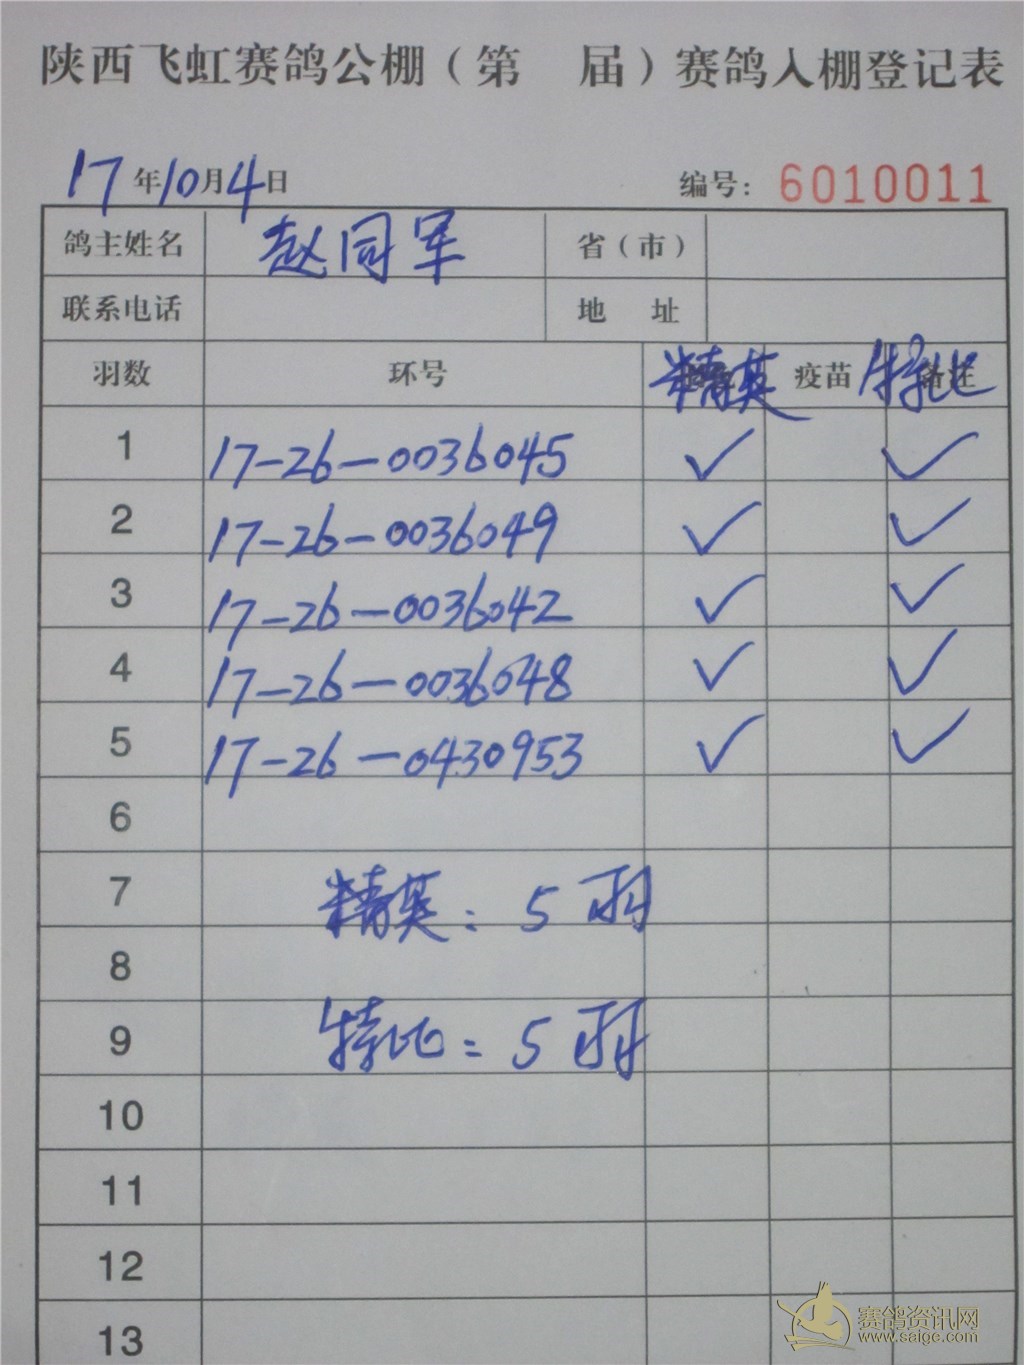 陕西飞虹赛鸽公棚（第　届）赛鸽入棚登记表
17年10月4日 编号：6010011
鸽主姓名 赵同军 省（市）
联系电话 地　址
羽数 环号 精英 疫苗 特比
1 17-26-0036045 ✓ ✓
2 17-26-0036049 ✓ ✓
3 17-26-0036042 ✓ ✓
4 17-26-0036048 ✓ ✓
5 17-26-0430953 ✓ ✓
6
7 精英：5羽
8
9 特比：5羽
10
11
12
13
赛鸽资讯网
www.saige.com